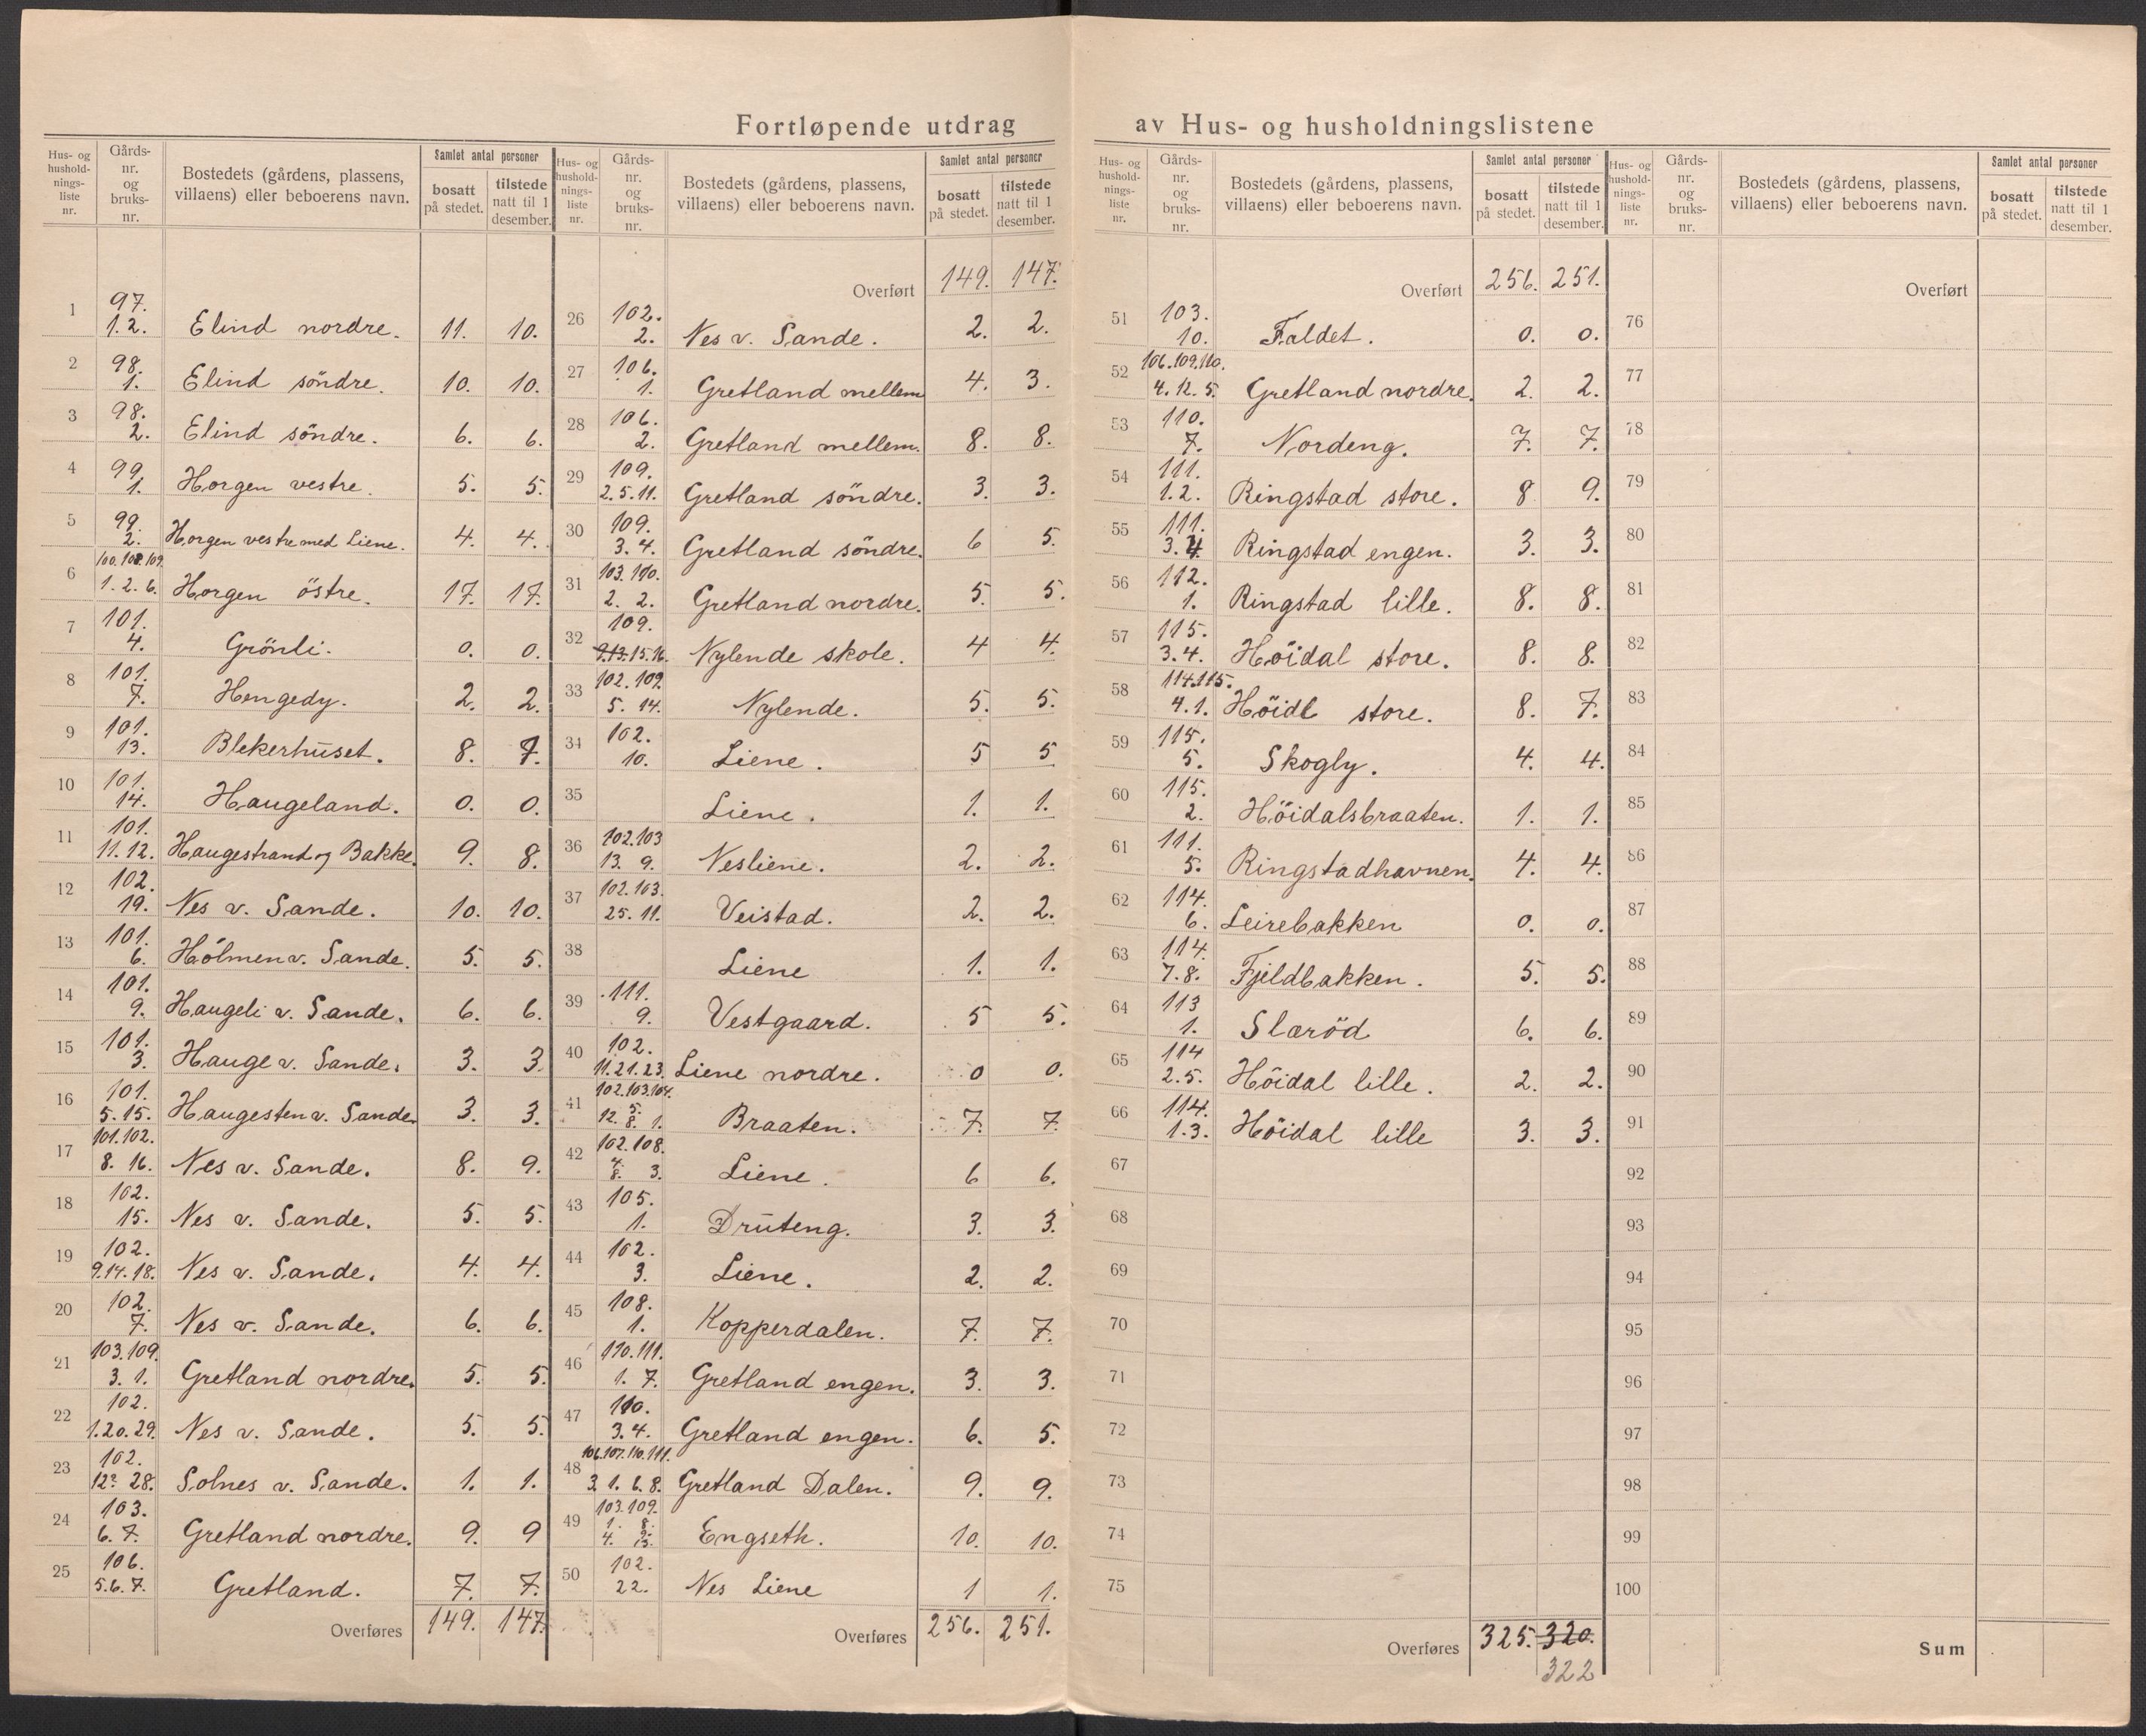 Fortløpende utdrag av Hus- og husholdningslistene
Hus- og husholdningsliste nr. | Gårds-nr. og bruks-nr. | Bostedets (gårdens, plassens, villaens) eller beboerens navn. | Samlet antal personer | bosatt på stedet. | tilstede natt til 1 desember.
1 | 97. 1.2. | Elind nordre. | 11. | 10.
2 | 98. 1. | Elind söndre. | 10. | 10.
3 | 98. 2. | Elind söndre. | 6. | 6.
4 | 99. 1. | Horgen vestre. | 5. | 5.
5 | 99. 2. | Horgen vestre med Liene. | 4. | 4.
6 | 100. 108. 109. 1. 2. 6. | Horgen östre. | 17. | 17.
7 | 101. 4. | Grönli. | 0. | 0.
8 | 101. 7. | Hengedy. | 2. | 2.
9 | 101. 13. | Blekerhuset. | 8. | 7.
10 | 101. 14. | Haugeland. | 0. | 0.
11 | 101. 11.12. | Haugestrand og Bakke. | 9. | 8.
12 | 102. 19. | Nes v. Sande. | 10. | 10.
13 | 101. 6. | Hólmen v. Sande. | 5. | 5.
14 | 101. 9. | Haugeli v. Sande. | 6. | 6.
15 | 101. 3. | Hauge v. Sande. | 3. | 3.
16 | 101. 5.15. | Haugesten v. Sande. | 3. | 3.
17 | 101.102. 8. 16. | Nes v. Sande. | 8. | 9.
18 | 102. 15. | Nes v. Sande. | 5. | 5.
19 | 102. 9.14.18. | Nes v. Sande. | 4. | 4.
20 | 102. 7. | Nes v. Sande. | 6. | 6.
21 | 103.109. 3. 1. | Gretland nordre. | 5. | 5.
22 | 102. 1.20.29. | Nes v. Sande. | 5. | 5.
23 | 102. 28. | Solnes v. Sande. | 1. | 1.
24 | 103. 6. 7. | Gretland nordre. | 9. | 9
25 | 106. 5.6.7. | Gretland. | 7. | 7.
Overføres | 149. | 147.
Hus- og husholdningsliste nr. | Gårds-nr. og bruks-nr. | Bostedets (gårdens, plassens, villaens) eller beboerens navn. | Samlet antal personer | bosatt på stedet. | tilstede natt til 1 desember.
Overført | 149. | 147.
26 | 102. 2. | Nes v. Sande. | 2. | 2.
27 | 106. 1. | Gretland mellem | 4. | 3.
28 | 106. 2. | Gretland mellem. | 8. | 8.
29 | 109. 2.5.11. | Gretland söndre. | 3. | 3.
30 | 109. 3. 4. | Gretland söndre. | 6 | 5.
31 | 103. 110. 2. 2. | Gretland nordre. | 5. | 5.
32 | 109. 9.13.15.16. | Nylende skole. | 4 | 4.
33 | 102.109. 5. 14. | Nylende. | 5. | 5.
34 | 102. 10. | Liene. | 5 | 5
35 | Liene. | 1. | 1.
36 | 102.103 13. 9. | Nesliene. | 2. | 2.
37 | 102.103. 25. 11. | Veistad. | 2. | 2.
38 | Liene | 1. | 1.
39 | 111. 9. | Vestgaard. | 5 | 5.
40 | 102. 11.21.23. | Liene nordre. | 0 | 0.
41 | 102.103.104. 12. 5. 8. 1. | Braaten. | 7. | 7.
42 | 102.108. 4. 8. 3. | Liene. | 6 | 6.
43 | 105. 1. | Druteng. | 3. | 3.
44 | 102. 3. | Liene. | 2. | 2.
45 | 108. 1. | Kopperdalen. | 7. | 7.
46 | 110.111. 1. 7. | Gretland engen. | 3. | 3.
47 | 110. 3.4. | Gretland engen. | 6. | 5.
48 | 106.107.110.111. 3. 1. 6. 8. | Gretland Dalen. | 9. | 9.
49 | 103.109. 1. 8. 4. | Engseth. | 10. | 10.
50 | 102. 22. | Nes Liene | 1 | 1.
Overføres | 256. | 251.
Hus- og husholdningsliste nr. | Gårds-nr. og bruks-nr. | Bostedets (gårdens, plassens, villaens) eller beboerens navn. | Samlet antal personer | bosatt på stedet. | tilstede natt til 1 desember.
Overført | 256. | 251.
51 | 103. 10. | Faldet. | 0. | 0.
52 | 106.109.110. 4. 12. 5. | Gretland nordre. | 2. | 2.
53 | 110. 7. | Nordeng. | 7. | 7.
54 | 111. 1.2. | Ringstad store. | 8 | 9.
55 | 111. 3.4. | Ringstad engen. | 3. | 3.
56 | 112. 1. | Ringstad lille. | 8. | 8.
57 | 115. 3.4. | Höidal store. | 8. | 8.
58 | 114.115. 4.1. | Höidl store. | 8. | 7.
59 | 115. 5. | Skogly. | 4. | 4.
60 | 115. 2. | Höidalsbraaten. | 1. | 1.
61 | 111. 5. | Ringstadhavnen. | 4. | 4.
62 | 114. 6. | Leirebakken | 0. | 0.
63 | 114. 7.8. | Fjeldbakken. | 5. | 5.
64 | 113 1. | Slaröd | 6. | 6.
65 | 114 2.5. | Höidal lille. | 2. | 2.
66 | 114. 1.3. | Höidal lille | 3. | 3.
67
68
69
70
71
72
73
74
75
Overføres | 325. | 320.
322
Hus- og husholdningsliste nr. | Gårds-nr. og bruks-nr. | Bostedets (gårdens, plassens, villaens) eller beboerens navn. | Samlet antal personer | bosatt på stedet. | tilstede natt til 1 desember.
Overført
76
77
78
79
80
81
82
83
84
85
86
87
88
89
90
91
92
93
94
95
96
97
98
99
100
Sum